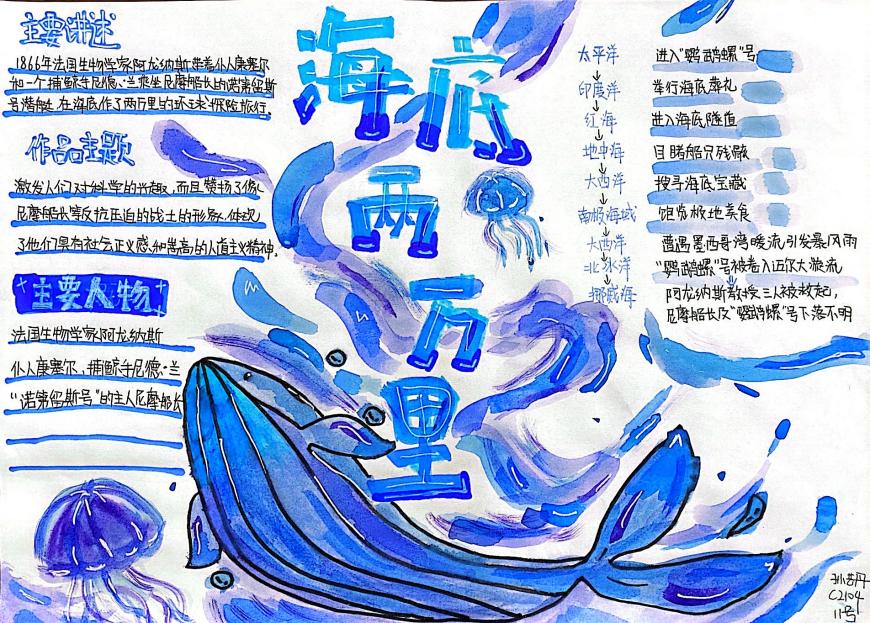 海底两万里
主要讲述
1866年法国生物学家阿龙纳斯带着仆人康塞尔
和一个捕鲸手尼德·兰乘坐尼摩船长的诺第留斯
号潜艇在海底作了两万里的环球探险旅行.
作品主题
激发人们对科学的兴趣,而且赞扬了像
尼摩船长等反抗压迫的战士的形象,体现
了他们具有社会正义感和崇高的人道主义精神.
主要人物
法国生物学家阿龙纳斯
仆人康塞尔、捕鲸手尼德·兰
“诺第留斯号”的主人尼摩船长
太平洋
印度洋
红海
地中海
大西洋
南极海域
大西洋
北冰洋
挪威海
进入“鹦鹉螺”号
举行海底葬礼
进入海底隧道
目睹船只残骸
搜寻海底宝藏
饱览极地美食
遭遇墨西哥湾暖流引发暴风雨
“鹦鹉螺”号被卷入迈尔大漩流
阿龙纳斯教授三人被救起,
尼摩船长及“鹦鹉螺”号下落不明
C2104
11号